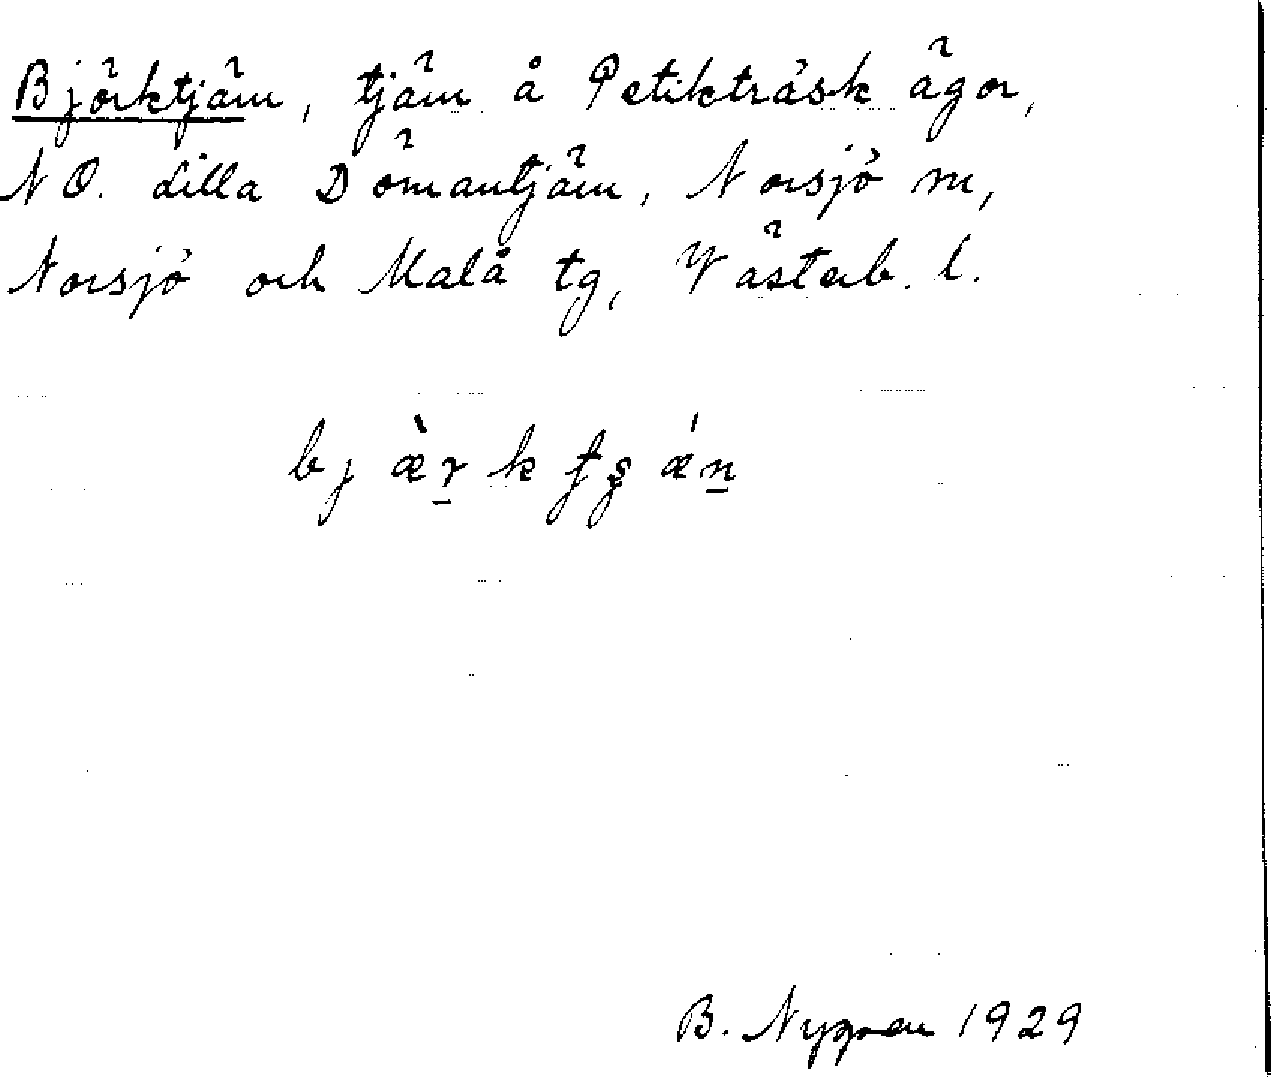 Björktjärn, tjärn å Petikträsk ägor,
NO. Lilla Dömantjärn, Norsjö sn,
Norsjö och Malå tg, Västerb. l.
bj æ̀r̲ k ƭʂ ǽn̲
B. Nygren 1929